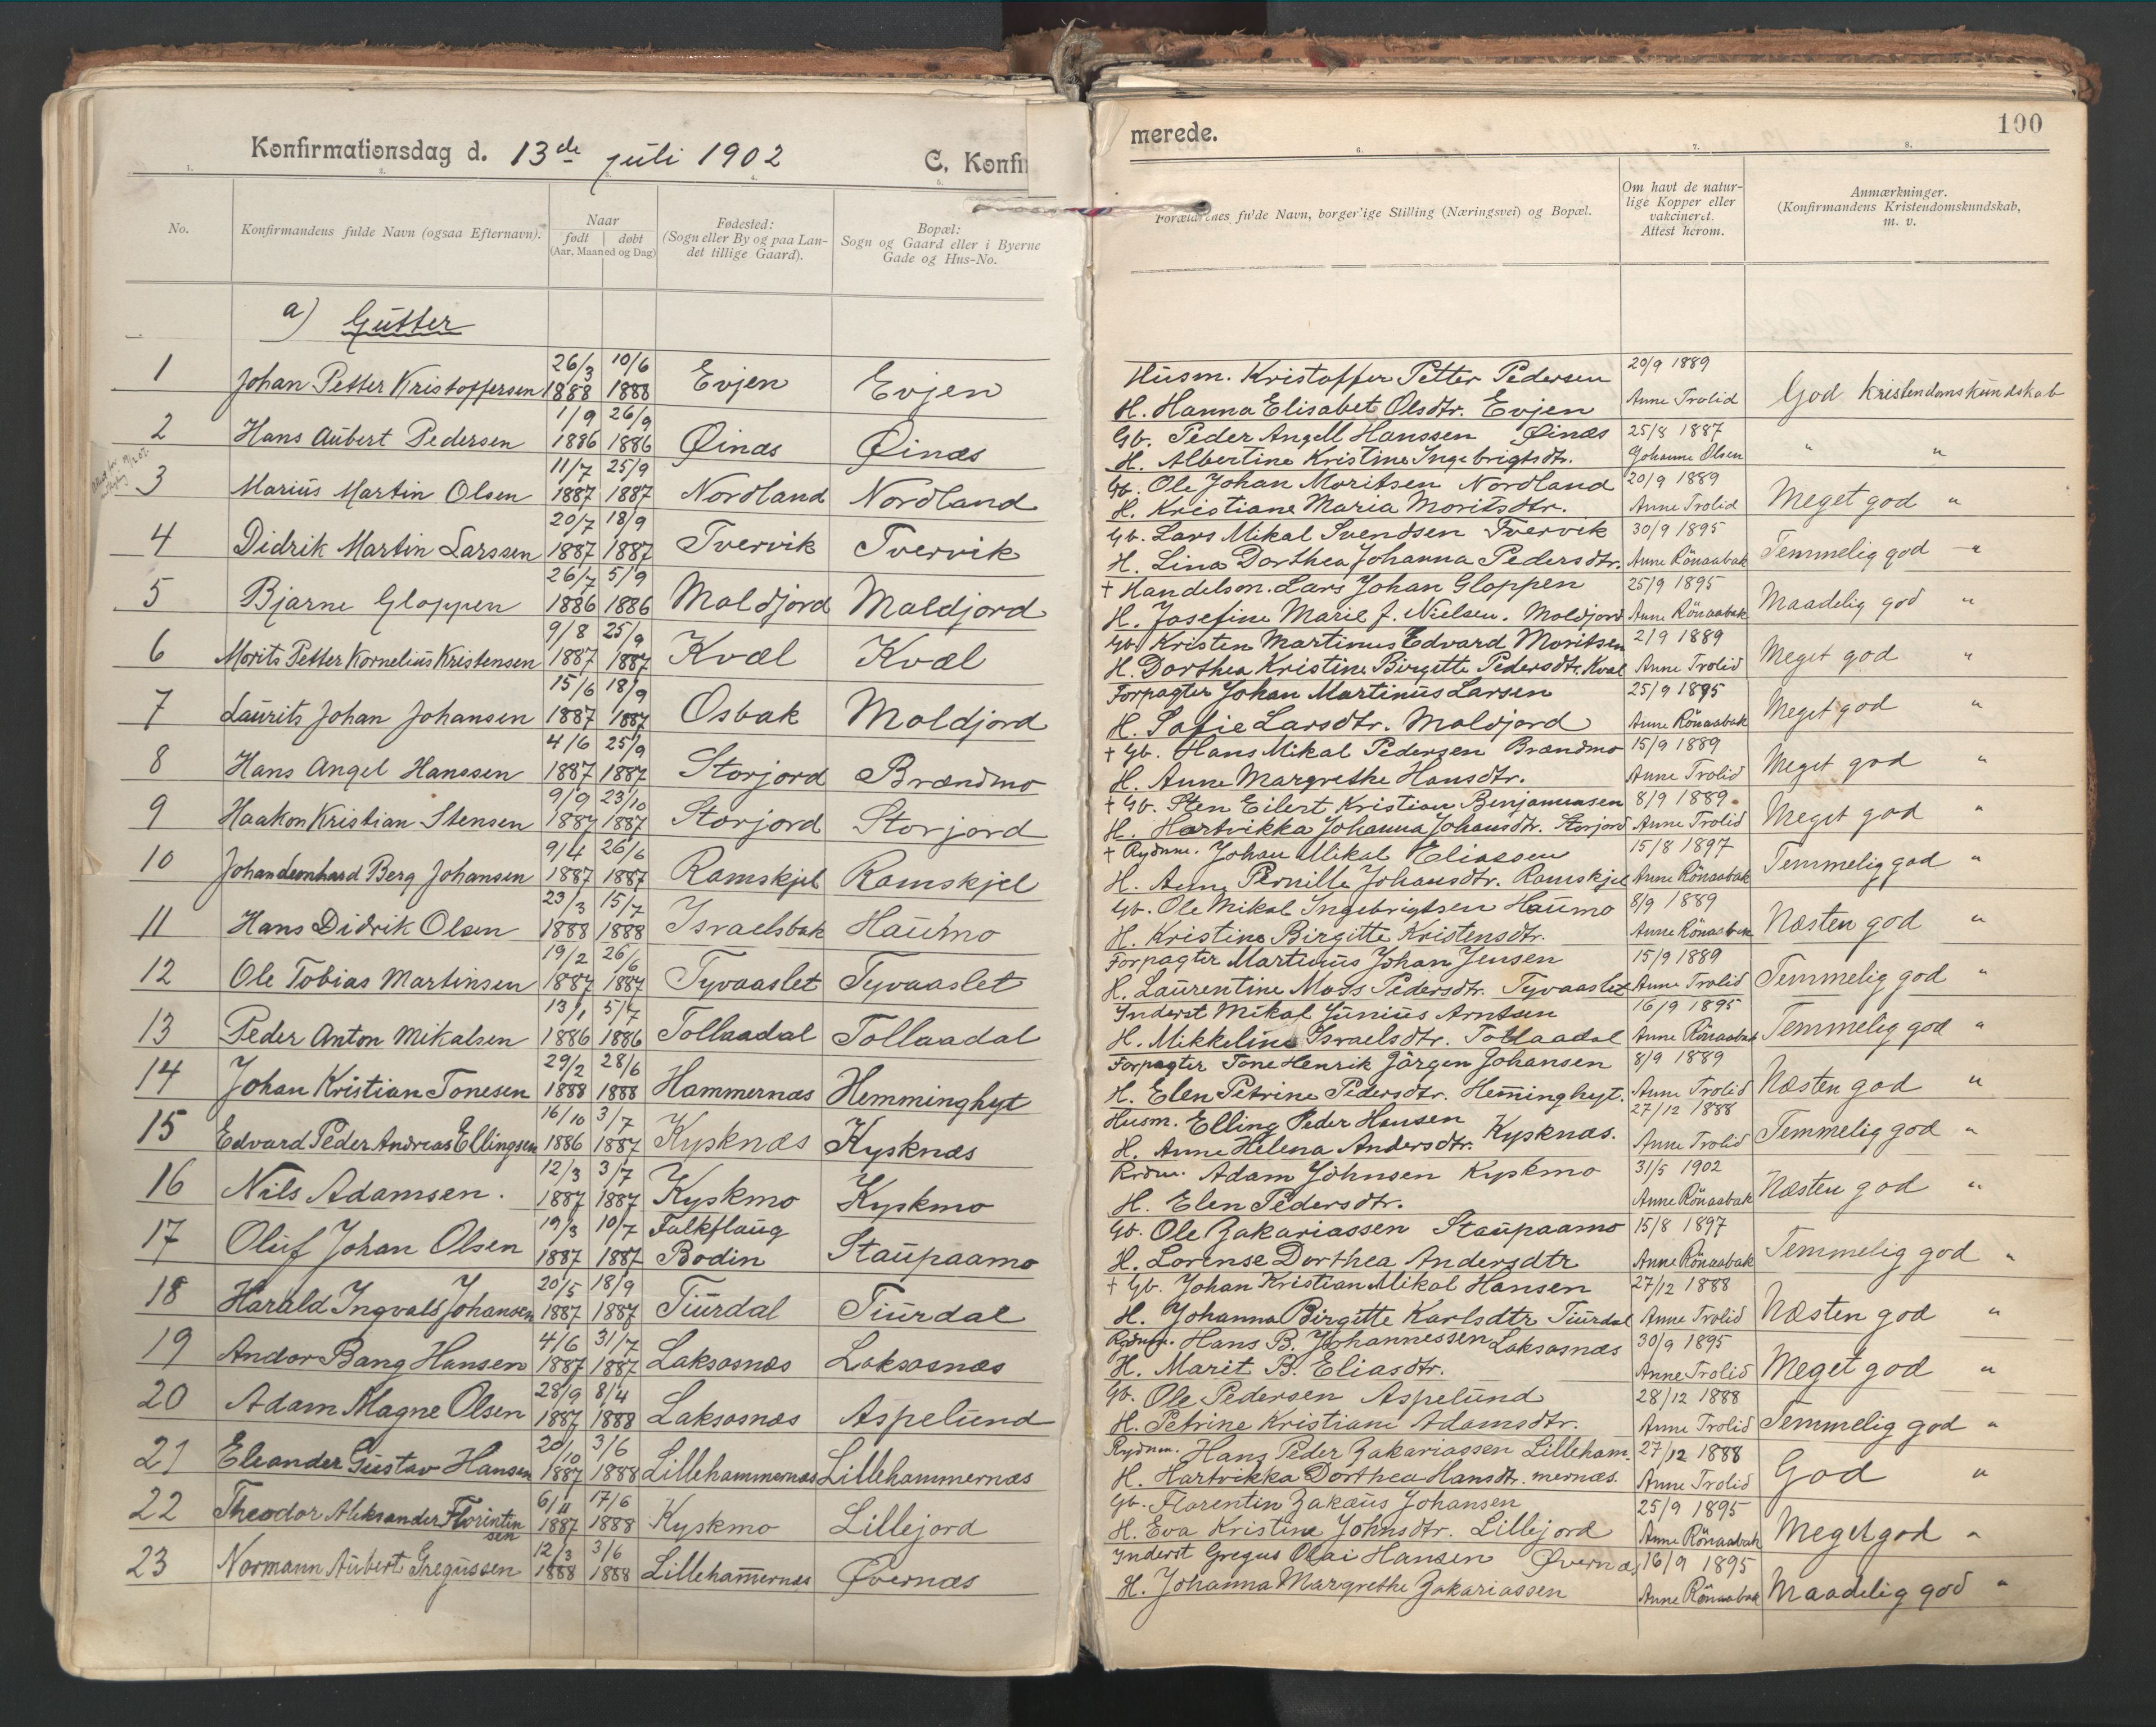 Konfirmationsdag d. 13de juli 1902 C. Konfir
merede. 100
1. 2. 3. 4. 5. 6. 7. 8.
No. | Konfirmandens fulde Navn (ogsaa Efternavn). | Naar født | døbt (Aar, Maaned og Dag) | Fødested: (Sogn eller By og paa Landet tillige Gaard). | Bopæl: Sogn og Gaard eller i Byerne Gade og Hus-No. | Forældrenes fulde Navn, borgerlige Stilling (Næringsvei) og Bopæl. | Om havt de naturlige Kopper eller vakcineret. Attest herom. | Anmærkninger. (Konfirmandens Kristendomskundskab, m. v.
a) Gutter
1 Johan Petter Kristoffersen 26/3 1888 10/6 1888 Evjen Evjen Husm. Kristoffer Petter Pedersen H. Hanna Elisabet Olsdtr. Evjen 20/9 1889 Anne Trolid God Kristendomskundskab
2 Hans Aubert Pedersen 1/9 1886 26/9 1886 Øinæs Øinæs Gb. Peder Angell Hanssen Øinæs H. Albertine Kristine Ingebrigtsdtr. 25/8 1887 Johanne Olsen " "
3 Marius Martin Olsen 11/7 1887 25/9 1887 Nordland Nordland Gb. Ole Johan Moritsen Nordland H. Kristiane Maria Moritsdtr. 20/9 1889 Anne Trolid Meget god "
4 Didrik Martin Larssen 20/7 1887 18/9 1887 Tvervik Tvervik Gb. Lars Mikal Svendsen Tvervik H. Lina Dorthea Johanna Pedersdtr. 30/9 1895 Anne Rönaabak Temmelig god "
5 Bjarne Gloppen 26/7 1886 5/9 1886 Moldjord Moldjord + Handelsm. Lars Johan Gloppen H. Josefine Marie J. Nielsen. Moldjord 25/9 1895 Anne Rönaabak Maadelig god "
6 Morits Petter Kornelius Kristensen 9/8 1887 25/9 1887 Kvæl Kvæl Gb. Kristen Martinus Edvard Moritsen H. Dorthea Kristine Birgitte Pedersdtr. Kvæl 2/9 1889 Anne Trolid Meget god "
7 Laurits Johan Johansen 15/6 1887 18/9 1887 Osbak Moldjord Forpagter Johan Martinus Larsen H. Sofie Larsdtr. Moldjord 25/9 1895 Anne Rönaabak Meget god "
8 Hans Angel Hanssen 4/6 1887 25/9 1887 Storjord Brændmo + Gb. Hans Mikal Pedersen Brændmo H. Anne Margrethe Hansdtr. 15/9 1889 Anne Trolid Meget god "
9 Haakon Kristian Stensen 9/9 1887 23/10 1887 Storjord Storjord + Gb. Sten Eilert Kristian Benjaminsen H. Hartvikka Johanna Johansdtr. Storjord 8/9 1889 Anne Trolid Meget god "
10 Johan Leonhard Berg Johansen 9/4 1887 26/6 1887 Ramskjel Ramskjel + Rydnm. Johan Mikal Eliassen H. Anne Pernille Johansdtr. Ramskjel 15/8 1897 Anne Rönaabak Temmelig god "
11 Hans Didrik Olsen 23/3 1888 15/7 1888 Israelsbak Haumo Gb. Ole Mikal Ingebrigtsen Haumo H. Kristine Birgitte Kristensdtr. 8/9 1889 Anne Rönaabak Næsten god "
12 Ole Tobias Martinsen 19/2 1887 26/6 1887 Tyvaaslet Tyvaaslet Forpagter Martinus Johan Jensen H. Laurentine Moss Pedersdtr. Tyvaaslet 15/9 1889 Anne Trolid Temmelig god "
13 Peder Anton Mikalsen 13/1 1886 5/7 1886 Tollaadal Tollaadal Inderst Mikal Junius Arntsen H. Mikkeline Israelsdtr. Tollaadal 16/9 1895 Anne Rönaabak Temmelig god "
14 Johan Kristian Tonesen 29/2 1888 28/6 1888 Hammernæs Hemminghyt Forpagter Tone Henrik Jörgen Johansen H. Elen Petrine Pedersdtr. Hemminghyt. 8/9 1889 Anne Trolid Næsten god "
15 Edvard Peder Andreas Ellingsen 16/10 1886 3/7 1887 Kysknæs Kysknæs Husm. Elling Peder Hansen H. Anne Helena Andersdtr. Kysknæs. 27/12 1888 Anne Trolid Temmelig god "
16 Nils Adamsen. 12/3 1887 3/7 1887 Kyskmo Kyskmo Rydnm. Adam Johnsen Kyskmo H. Elen Pedersdtr. 31/5 1902 Anne Rönaabak Næsten god "
17 Oluf Johan Olsen 19/3 1887 10/7 1887 Falkflaug Bodin Staupaamo Gb. Ole Zakariassen Staupaamo H. Lorense Dorthea Andersdtr 15/8 1897 Anne Rönaabak Temmelig god "
18 Harald Ingvald Johansen 20/5 1887 18/9 1887 Tiurdal Tiurdal + Gb. Johan Kristian Mikal Hansen H. Johanna Birgitte Karlsdtr Tiurdal 27/12 1888 Anne Trolid Næsten god "
19 Andor Bang Hansen 4/6 1887 31/7 1887 Laksosnæs Laksosnæs Rydnm. Hans B. Johannessen Laksosnæs H. Marit B. Eliasdtr. 30/9 1895 Anne Trolid Meget god "
20 Adam Magne Olsen 28/9 1887 8/4 1888 Laksosnæs Aspelund Gb. Ole Pedersen Aspelund H. Petrine Kristiane Adamsdtr. 28/12 1888 Anne Trolid Temmelig god "
21 Eleander Gustav Hansen 20/10 1887 3/6 1888 Lillehammernæs Lillehammernæs Rydnm. Hans Peder Zakariassen Lillehammernæs. H. Hartvikka Dorthea Hansdtr. 27/12 1888 Anne Trolid God "
22 Theodor Aleksander Florintinsen 6/11 1887 17/6 1888 Kyskmo Lillejord Gb. Florentin Zakæus Johansen H. Eva Kristine Johnsdtr. Lillejord 25/9 1895 Anne Rönaabak Meget god "
23 Normann Aubert Gregussen 12/3 1888 3/6 1888 Lillehamernæs Øvernæs Inderst Gregus Olai Hansen Øvernæs H. Johanna Margrethe Zakariassen 16/9 1895 Anne Rönaabak Maadelig god "